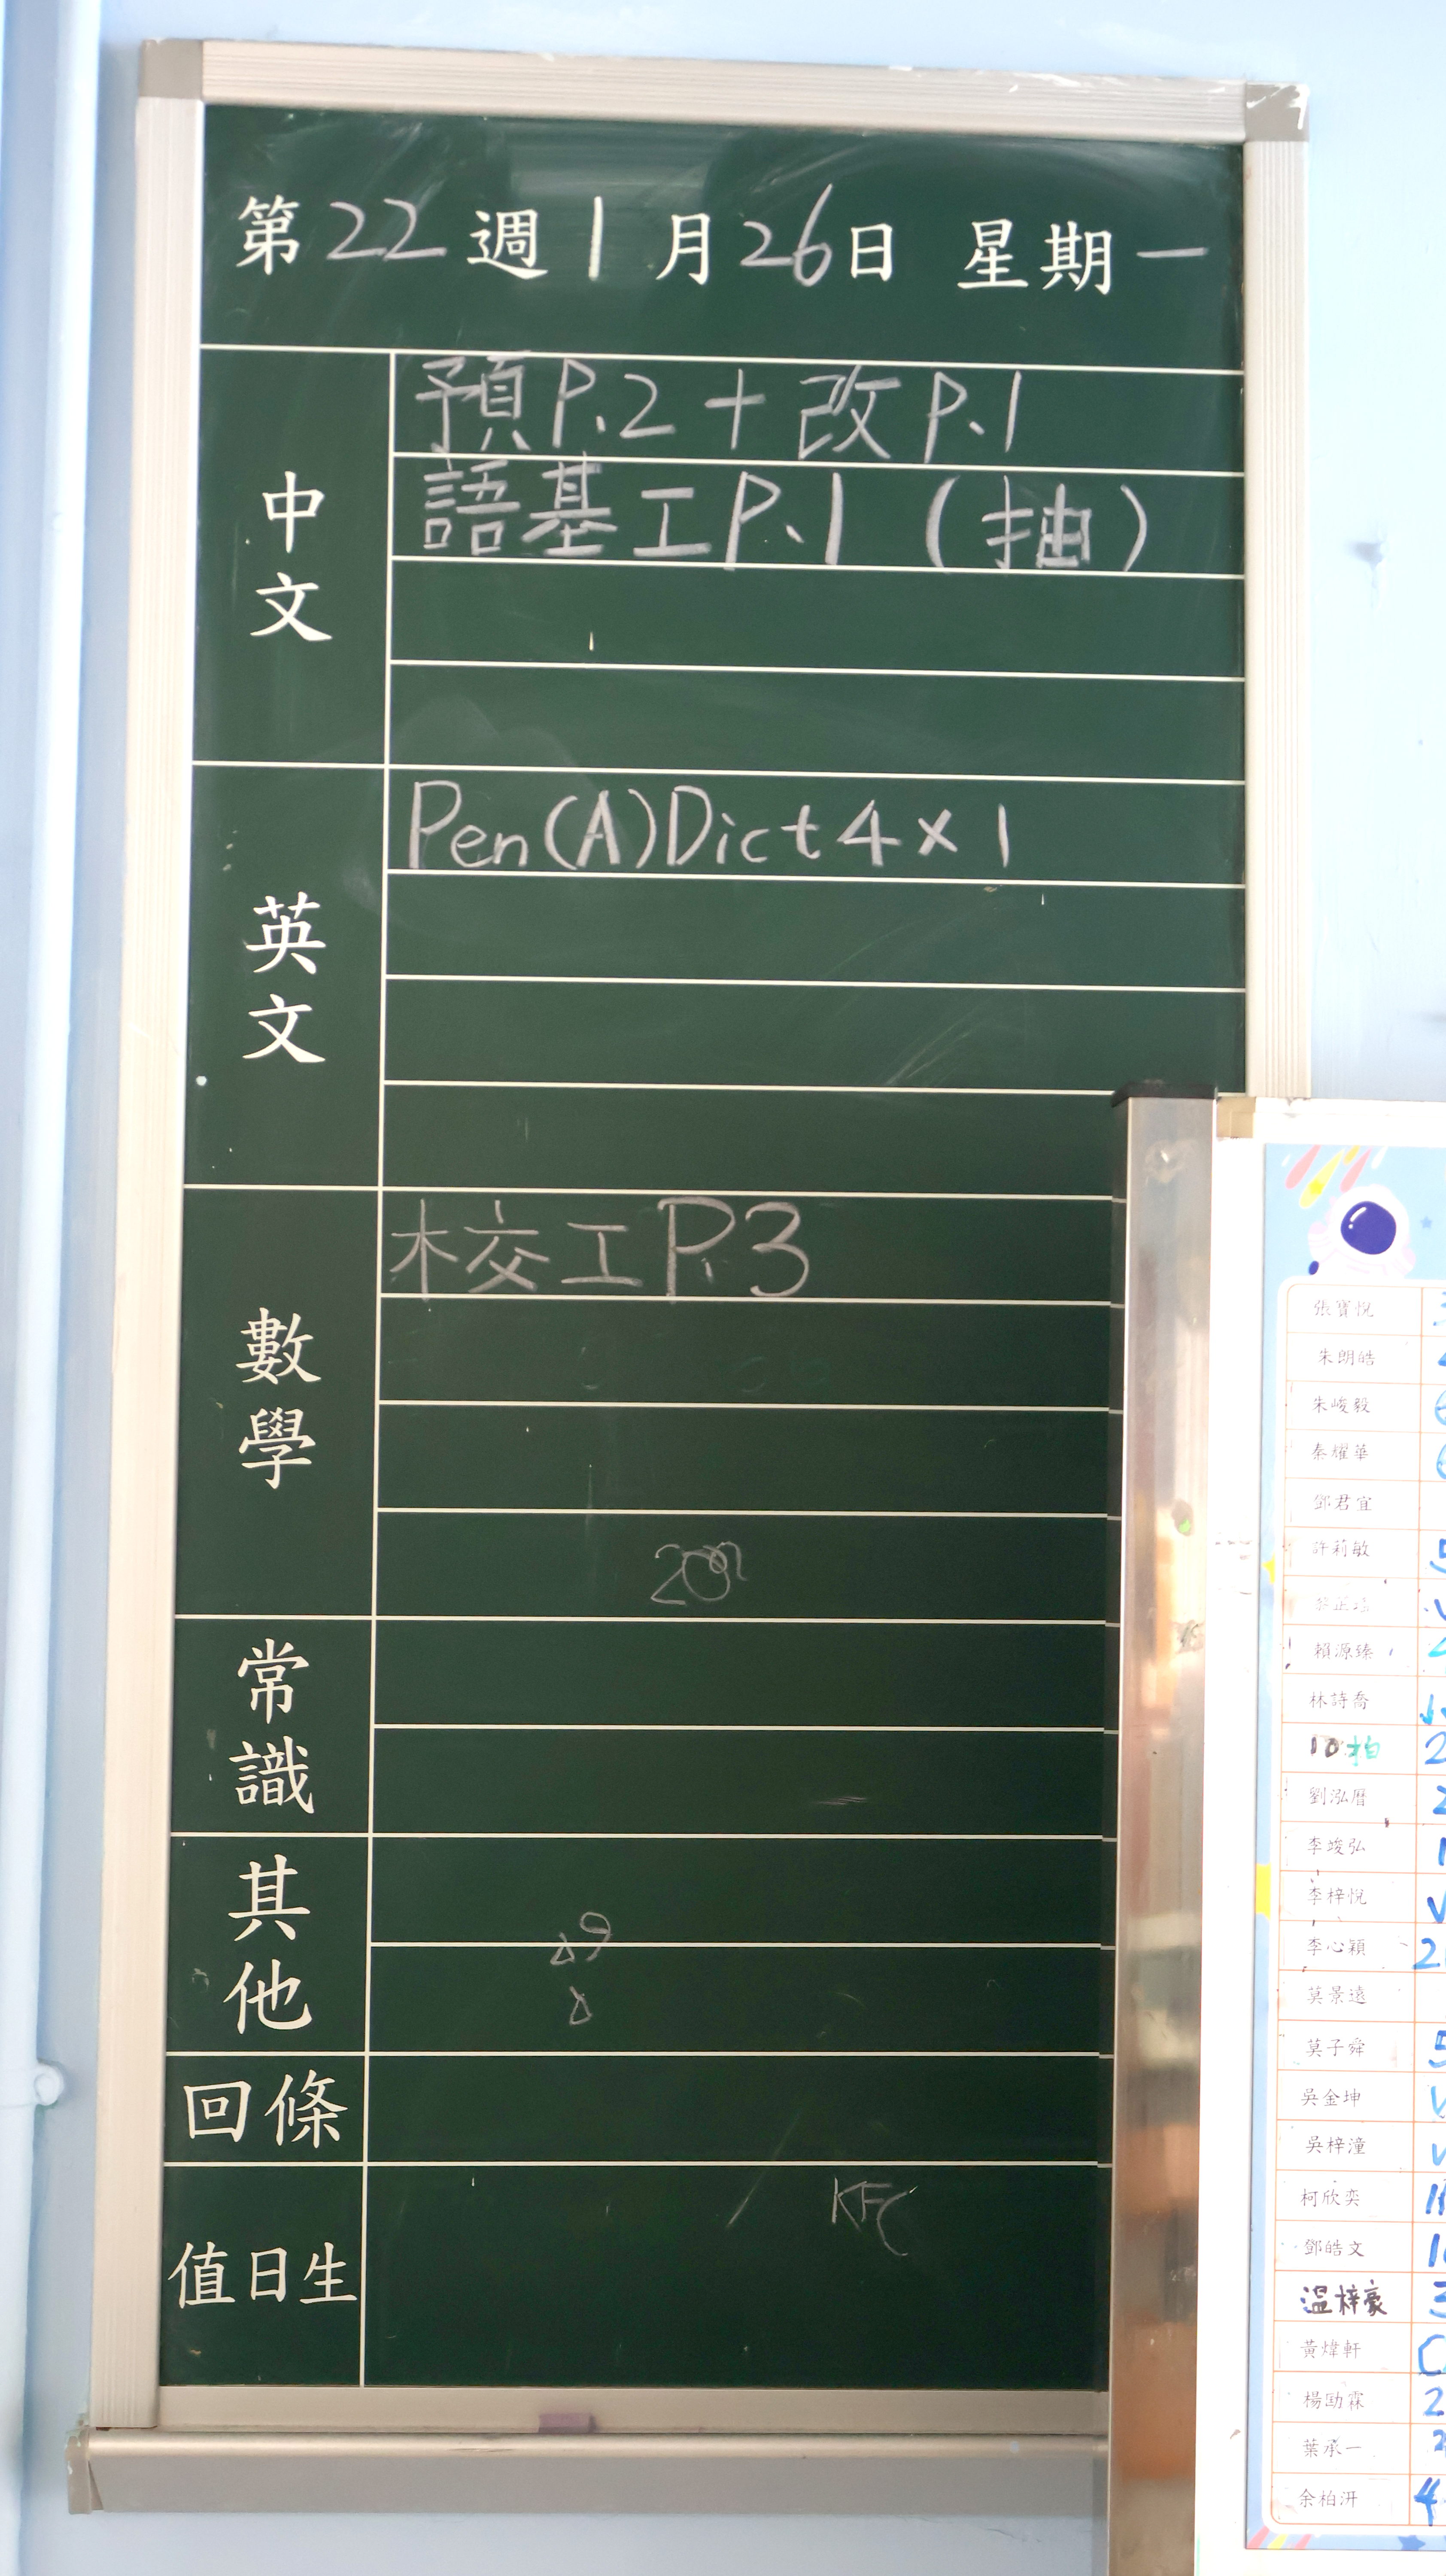 第22週1月26日 星期一
中文
預P.2+改P.1
語基工P.1(抽)
英文
Pen(A)Dict4×1
數學
校工P.3
常識
其他
回條
值日生
KFC
張寶悅
朱朗皓
朱峻毅
秦耀華
鄧君宜
許莉敏
賴源臻
林詩喬
10拍
劉泓曆
李竣弘
李梓悅
李心穎
莫景遠
莫子舜
吳金坤
吳梓潼
柯欣奕
鄧皓文
溫梓豪
黃煒軒
楊勖霖
葉承一
余柏汧